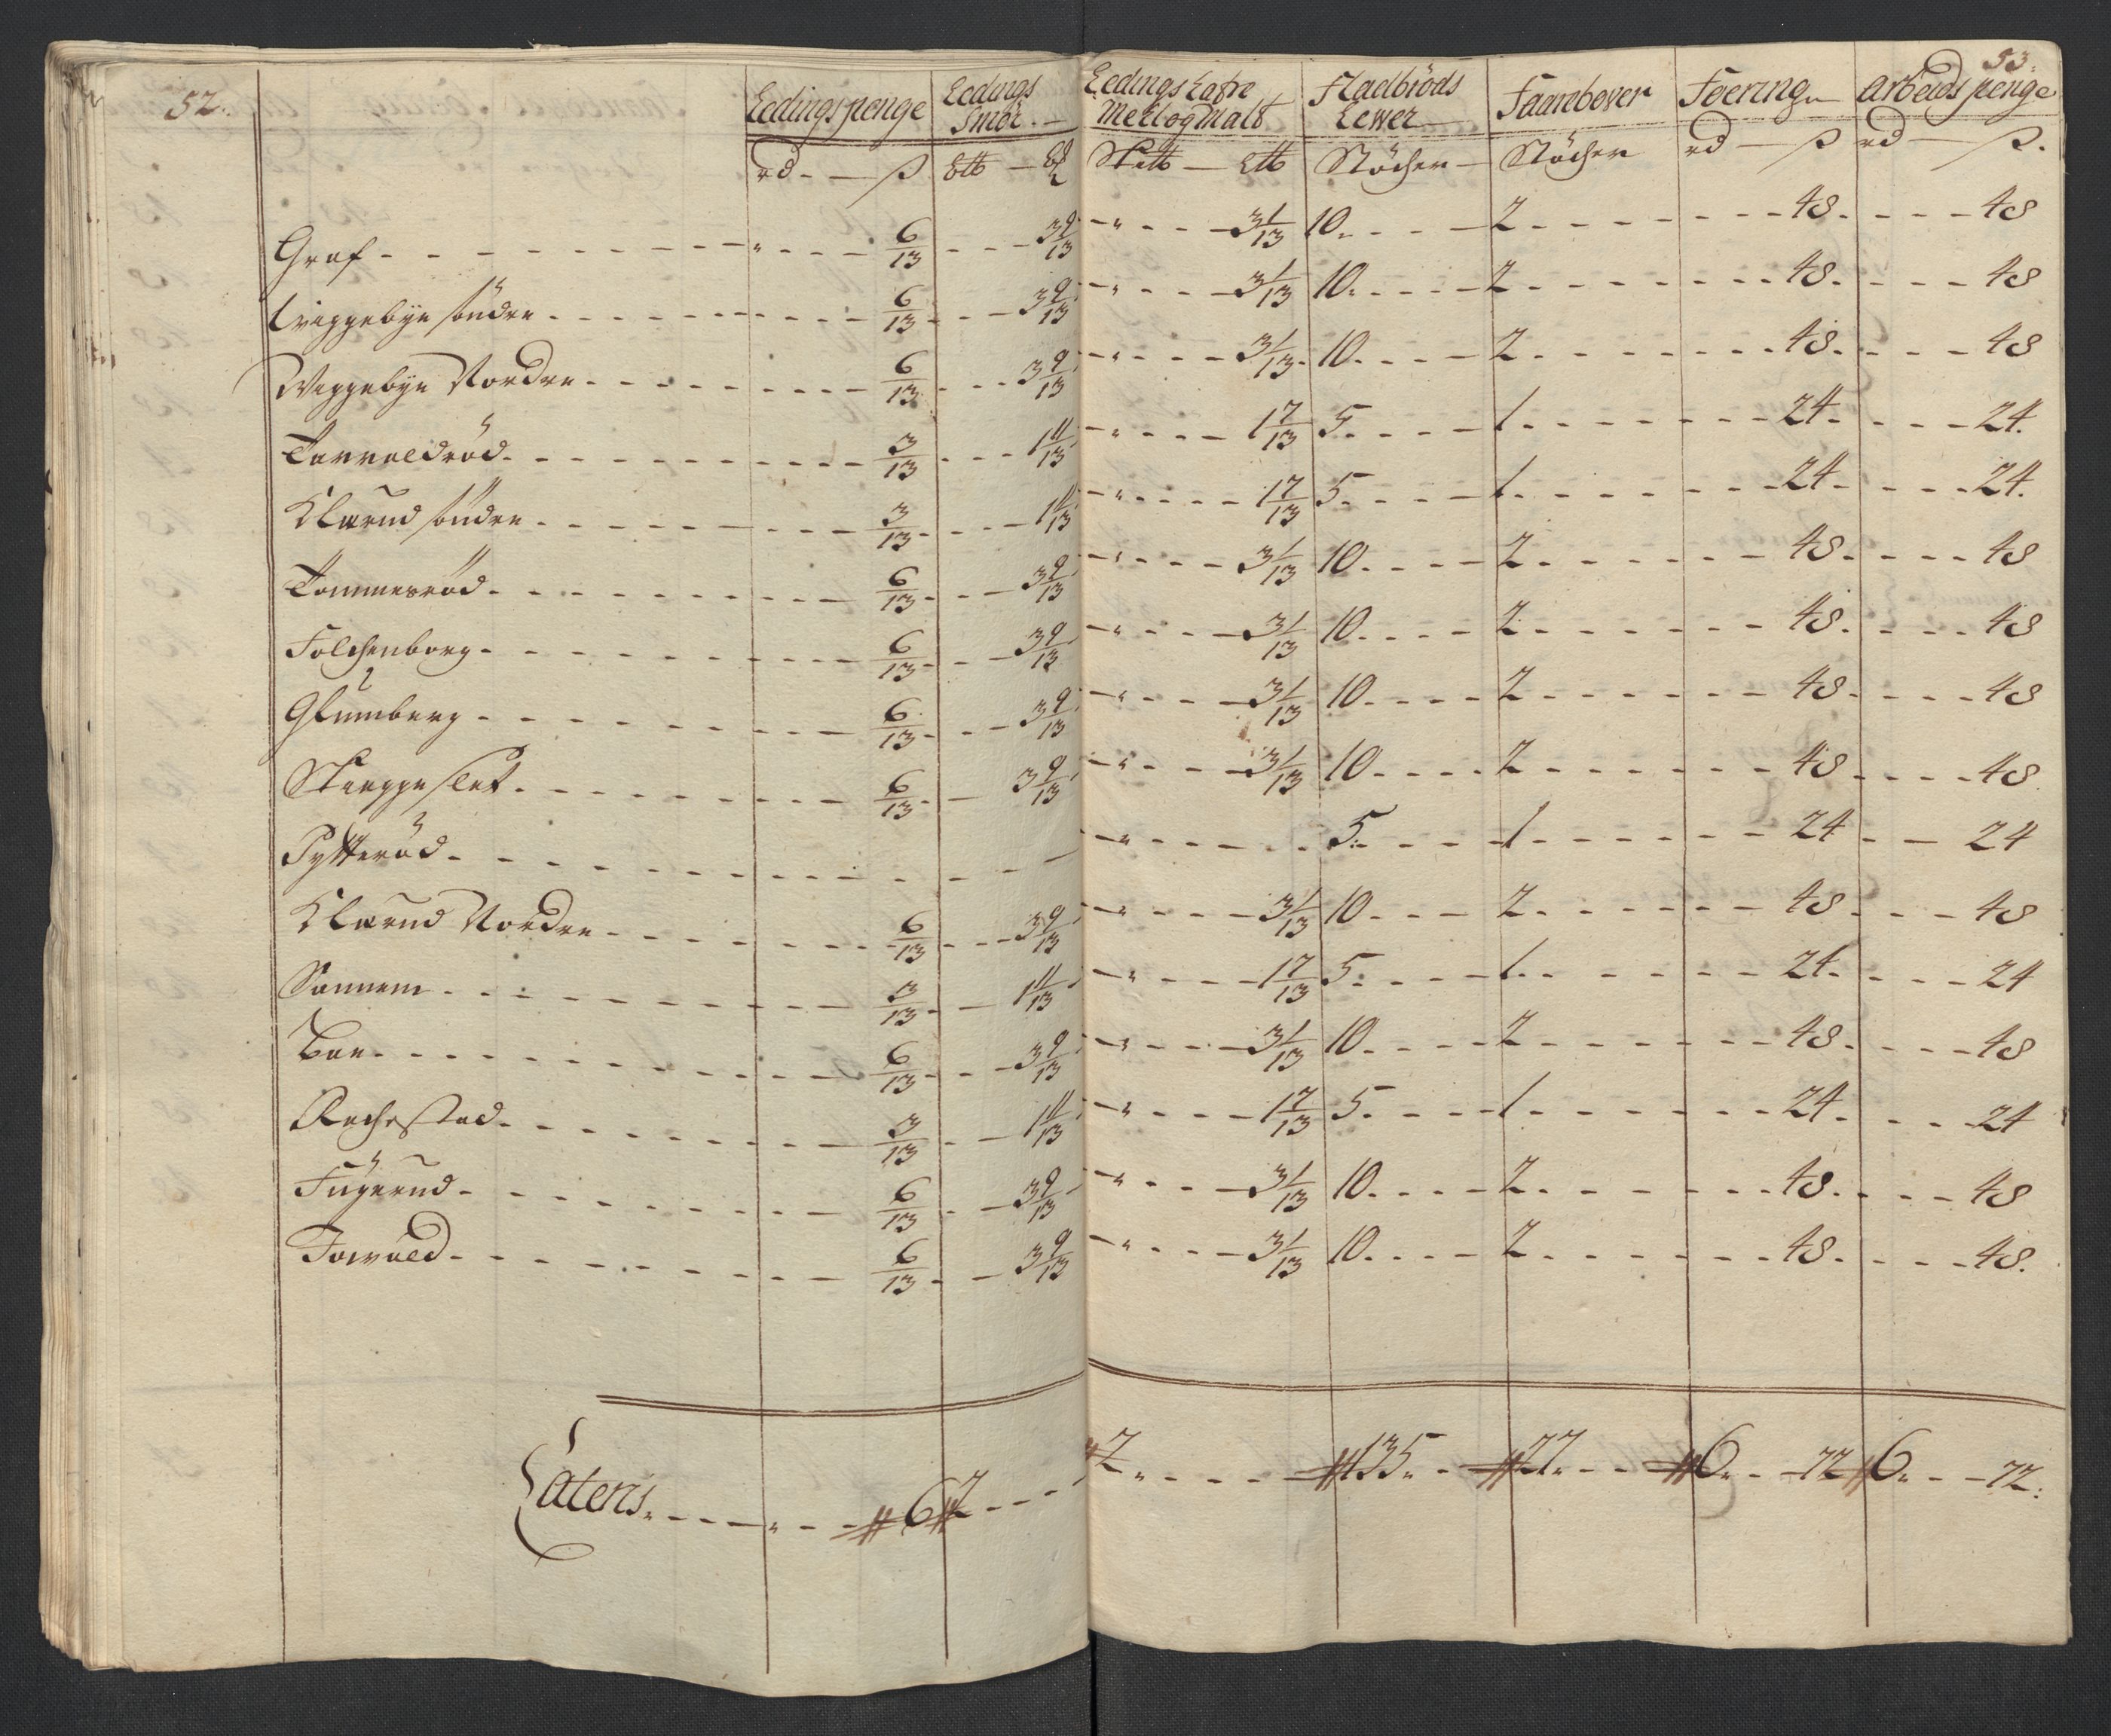 52.
53.
Ledings penge | Ledings Smör | Ledings Lafre Meel og Malt | Fladbröds Lewer | Faarebower | Foering | Arbeids penge
rd — ß | L℔ | ℔ | L℔ | Stöcher | Stöcher | rd — ß | rd — ß.
Graf | " | 6/13 | 3 9/13 | " | 3 1/13 | 10 | 2 | 48 | 48
Wiggebye söndre | 6/13 | 3 9/13 | " | 3 1/13 | 10 | 2 | 48 | 48
Wiggebye Nordre | 6/13 | 3 9/13 | " | 3 1/13 | 10 | 2 | 48 | 48
Torvaldröd | 3/13 | 1 11/13 | " | 1 7/13 | 5 | 1 | 24 | 24.
Klærud söndre | 3/13 | 1 11/13 | " | 1 7/13 | 5 | 1 | 24 | 24.
Tommesröd | 6/13 | 3 9/13 | " | 3 1/13 | 10 | 2 | 48 | 48
Folchenborg | 6/13 | 3 9/13 | " | 3 1/13 | 10 | 2 | 48 | 48
Glumberg | 6/13 | 3 9/13 | " | 3 1/13 | 10 | 2 | 48 | 48
Skieggeslet | 6/13 | 3 9/13 | " | 3 1/13 | 10 | 2 | 48 | 48
Pytteröd | " | 5 | 1 | 24 | 24
Klærud Nordre | 6/13 | 3 9/13 | " | 3 1/13 | 10 | 2 | 48 | 48
Sannem | 3/13 | 1 11/13 | " | 1 7/13 | 5 | 1 | 24 | 24
Boe | 6/13 | 3 9/13 | " | 3 1/13 | 10 | 2 | 48 | 48
Rachestad | 3/13 | 1 11/13 | " | 1 7/13 | 5 | 1 | 24 | 24
Fügerud | 6/13 | 3 9/13 | " | 3 1/13 | 10 | 2 | 48 | 48
Torvald | 6/13 | 3 9/13 | " | 3 1/13 | 10 | 2 | 48 | 48.
Lateris | " | 6 | 2 | 2 | 135 | 27 | 6 — 72 | 6 — 72.